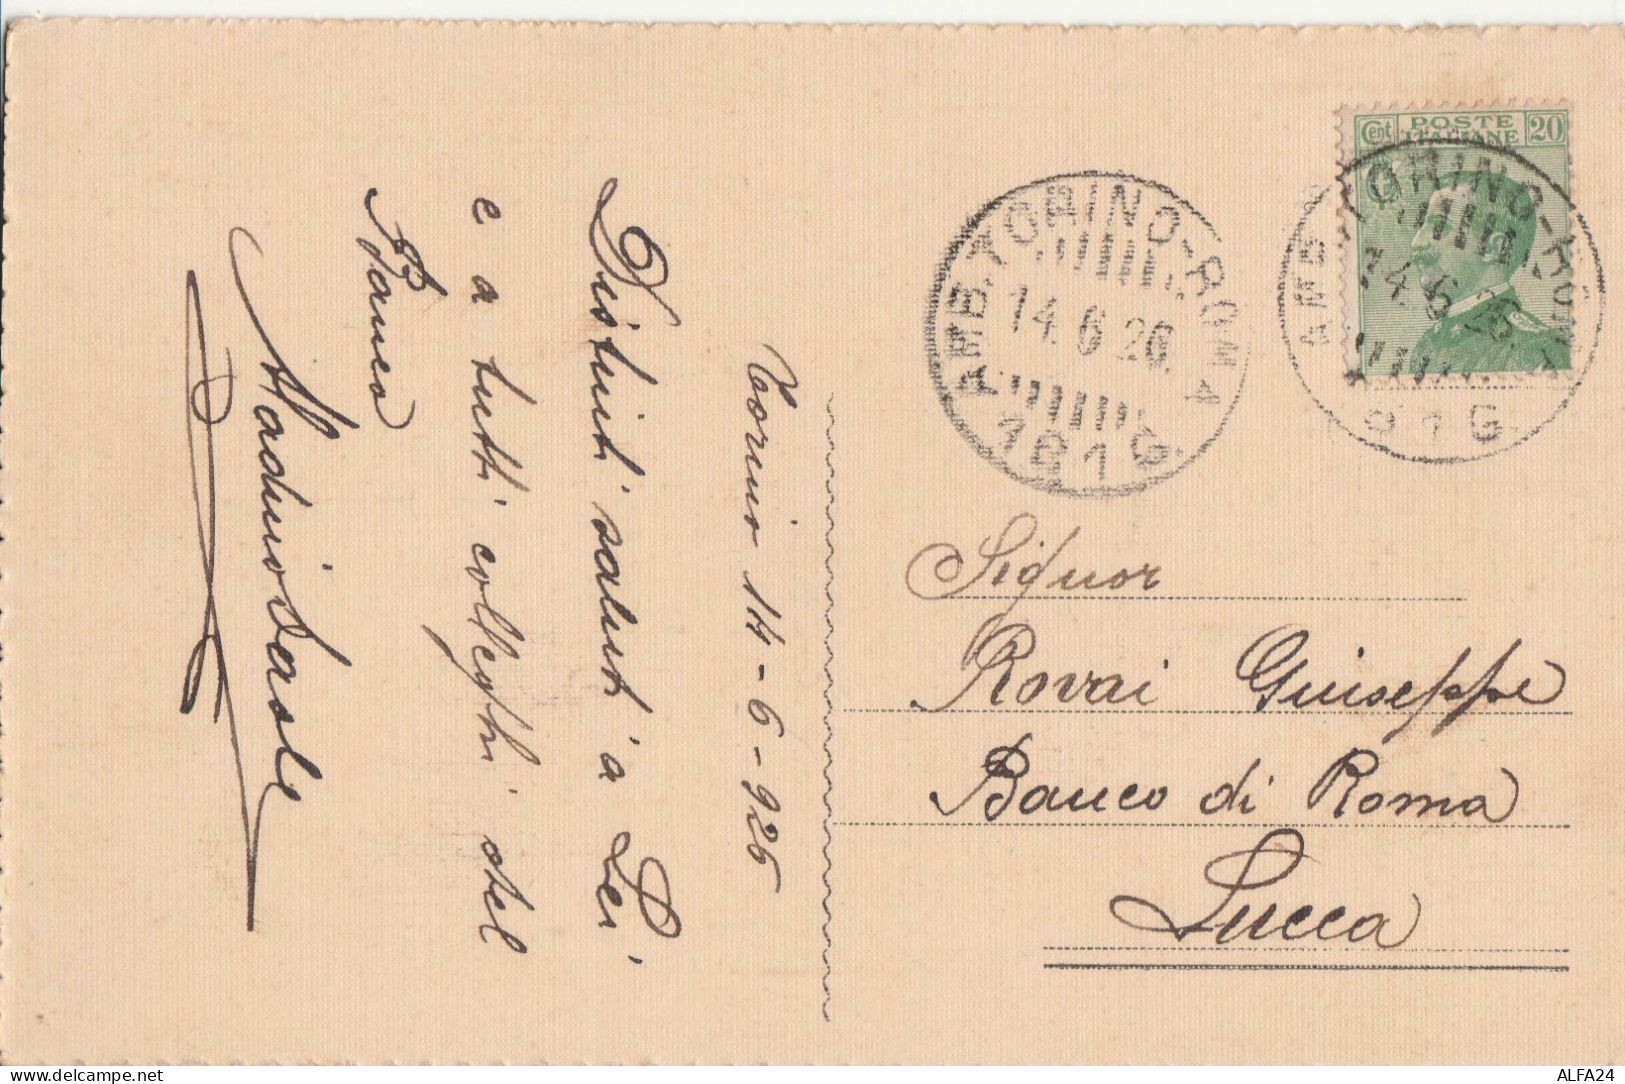 Torino 14-6-926
Distinti saluti a Lei
e a tutti colleghi del
Banco
Cent POSTE ITALIANE 20
AMB. TORINO-ROMA
14.6.26
191 G.
AMB. TORINO-ROMA
14.6.26.
91 G.
Signor
Rovai Giuseppe
Banco di Roma
Lucca
delcampe.net
ALFA24